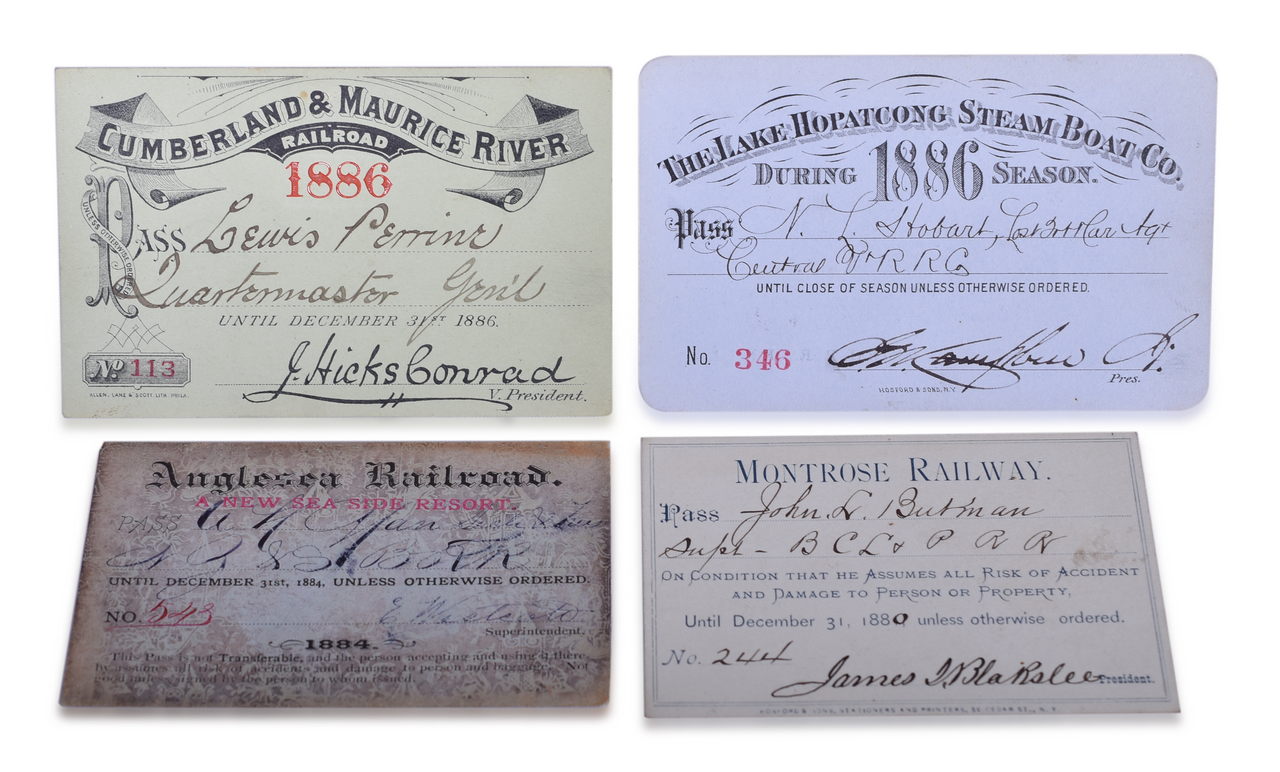 CUMBERLAND & MAURICE RIVER
RAILROAD
1886
PASS Lewis Perrine
UNLESS OTHERWISE ORDERED
Quartermaster Gen'l
UNTIL DECEMBER 31ST 1886.
No 113
J. Hicks Conrad
V. President.
ALLEN, LANE & SCOTT, LITH. PHILA.
THE LAKE HOPATCONG STEAM BOAT CO.
DURING 1886 SEASON.
Pass N. T. Hobart, Agt
Central RR Co
UNTIL CLOSE OF SEASON UNLESS OTHERWISE ORDERED.
No. 346
Pres.
HOSFORD & SONS, N.Y.
Anglesea Railroad.
A NEW SEA SIDE RESORT.
PASS
UNTIL DECEMBER 31st, 1884, UNLESS OTHERWISE ORDERED.
NO. 543
Superintendent.
1884.
This Pass is not Transferable, and the person accepting and using it there-
by assumes all risk of accidents and damage to person and baggage. Not
good unless signed by the person to whom issued.
MONTROSE RAILWAY.
Pass John L. Butman
Supt - B C L & P R R
ON CONDITION THAT HE ASSUMES ALL RISK OF ACCIDENT
AND DAMAGE TO PERSON OR PROPERTY,
Until December 31, 1880 unless otherwise ordered.
No. 244
James I. Blakslee President.
HOSFORD & SONS, STATIONERS AND PRINTERS, CEDAR ST., N. Y.